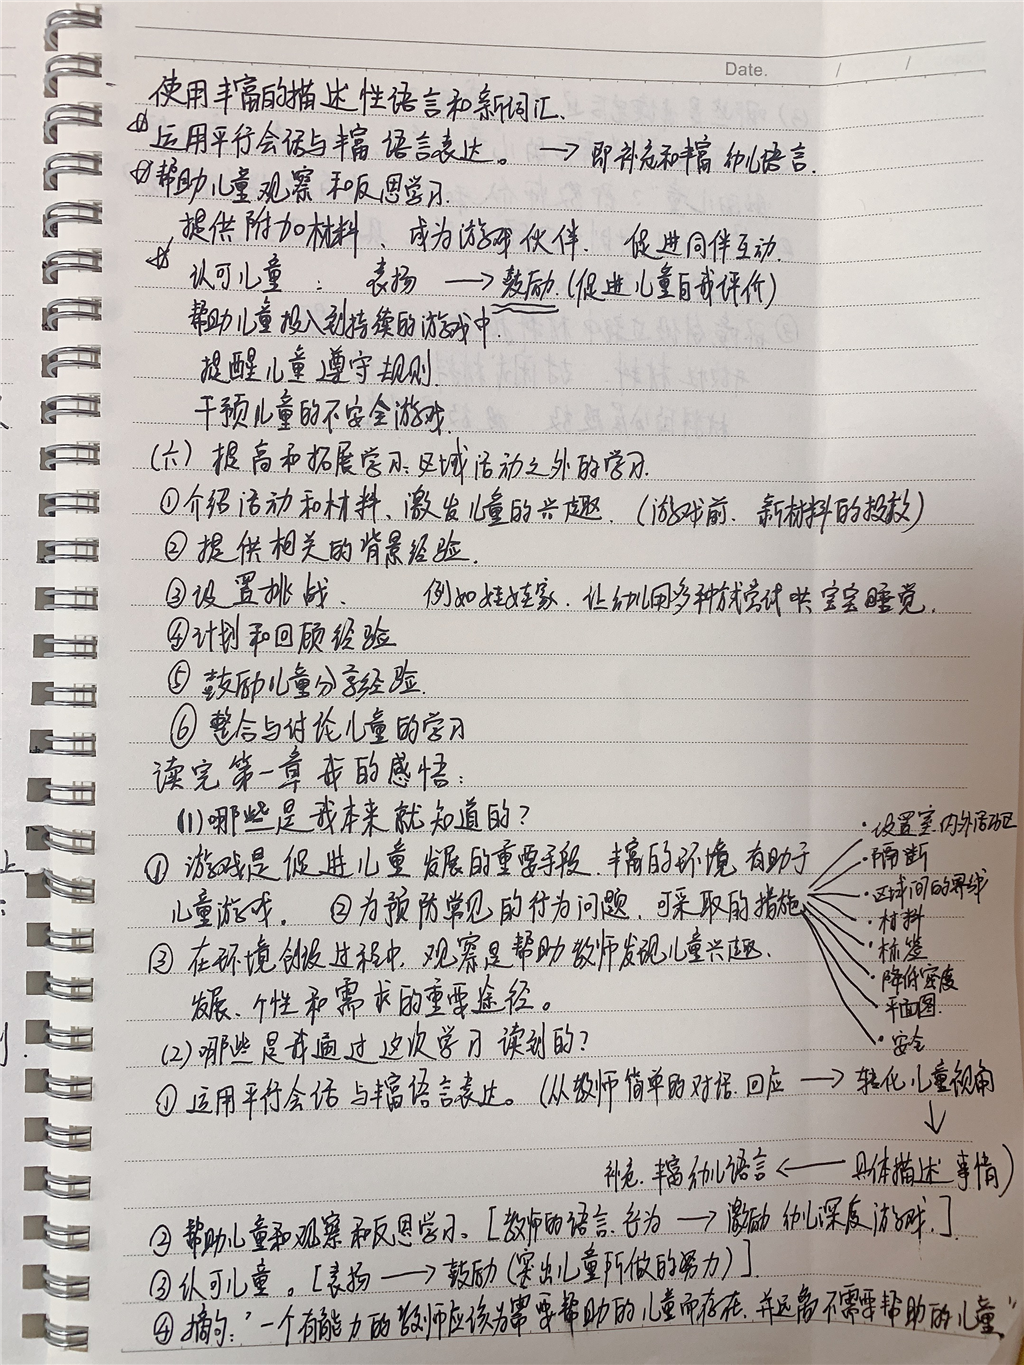 Date. / /
使用丰富的描述性语言和新词汇、
运用平行会话与丰富语言表达。→即补充和丰富幼儿语言.
帮助儿童观察和反思学习.
提供附加材料、成为游戏伙伴. 促进同伴互动.
认可儿童: 表扬→鼓励.(促进儿童自我评价)
帮助儿童投入到持续的游戏中.
提醒儿童遵守规则.
干预儿童的不安全游戏.
(六)提高和拓展学习:区域活动之外的学习.
①介绍活动和材料、激发儿童的兴趣.(游戏前.新材料的投放)
②提供相关的背景经验.
③设置挑战、 例如娃娃家.让幼儿用多种方式尝试哄宝宝睡觉.
④计划和回顾经验
⑤鼓励儿童分享经验.
⑥整合与讨论儿童的学习
读完第一章我的感悟:
(1)哪些是我本来就知道的?
①游戏是促进儿童发展的重要手段.丰富的环境有助于
儿童游戏. ②为预防常见的行为问题.可采取的措施
·设置室.内外活动区
·隔断
·区域间的界线
·材料
·标签
·降低密度
·平面图.
·安全
③在环境创设过程中.观察是帮助教师发现儿童兴趣.
发展.个性和需求的重要途径。
(2)哪些是我通过这次学习读到的?
①运用平行会话与丰富语言表达。(从教师简单的对话.回应→转化儿童视角
↓
补充.丰富幼儿语言←具体描述事情)
②帮助儿童和观察和反思学习。[教师的语言.行为→激励幼儿深度游戏.]
③认可儿童。[表扬→鼓励(突出儿童所做的努力)]
④摘句:"一个有能力的教师应该为需要帮助的儿童而存在.并远离不需要帮助的儿童"